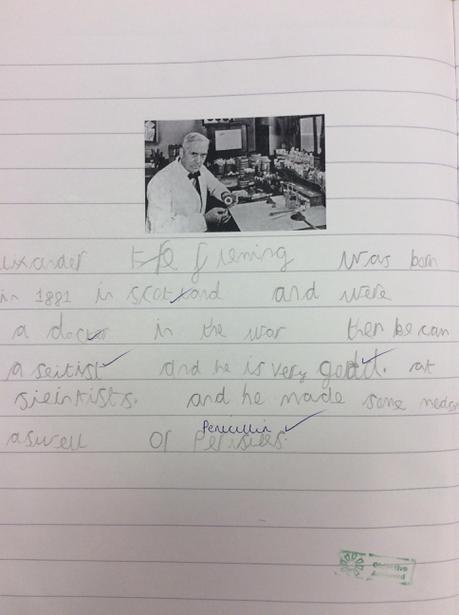 lixander fleming was born
in 1881 in scotland and were
a doctor in the war then becan
a seitist and he is very good. at
sieintists. and he made some meds
Penicillin
aswell of